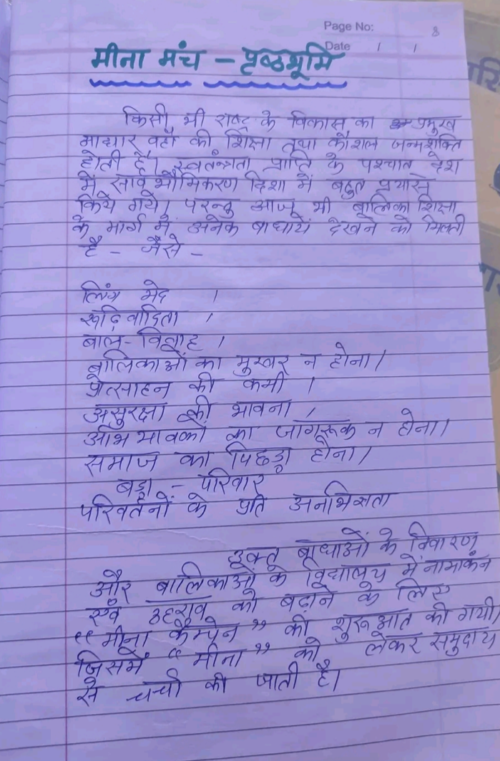 Page No: 8
Date / /
मीना मंच - पृष्ठभूमि
किसी भी राष्ट्र के विकास का प्रमुख
आधार वहाँ की शिक्षा तथा कौशल जनशक्ति
होती है। स्वतंत्रता प्राप्ति के पश्चात देश
में सार्वभौमिकरण दिशा में बहुत प्रयास
किये गये। परन्तु आज भी बालिका शिक्षा
के मार्ग में अनेक बाधायें देखने को मिलती
है - जैसे -
लिंग भेद ।
रूढ़िवादिता ।
बाल-विवाह ।
बालिकाओं का मुखर न होना।
प्रोत्साहन की कमी ।
असुरक्षा की भावना ।
अभिभावकों का जागरूक न होना।
समाज का पिछड़ा होना।
बड़ा - परिवार
परिवर्तनों के प्रति अनभिज्ञता
उक्त बाधाओं के निवारण
और बालिकाओं के विद्यालय में नामांकन
एवं ठहराव को बढ़ाने के लिए
“मीना कैम्पेन” की शुरूआत की गयी।
जिसमें “मीना” को लेकर समुदाय
से चर्चा की जाती है।